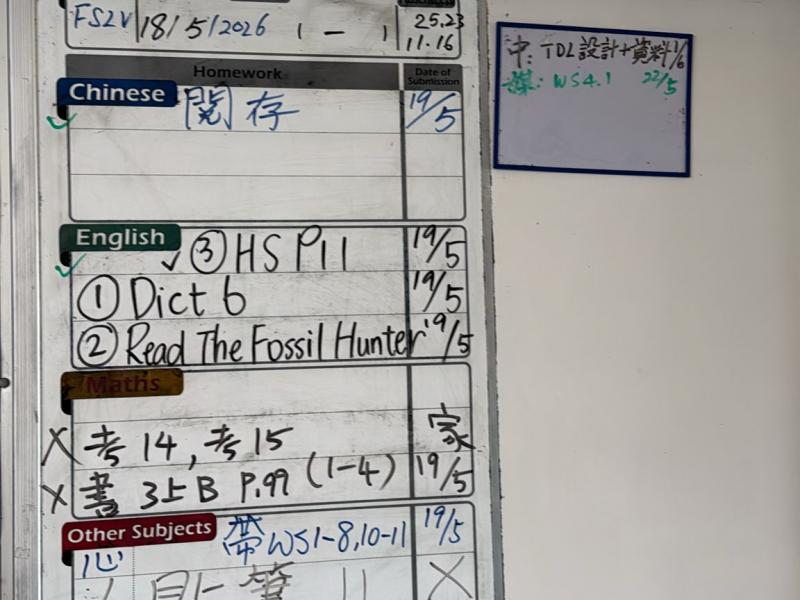 18/5/2026 1 - 1 25.23
11.16
Homework Date of Submission
Chinese 閱存 19/5
English ③ HS P11 19/5
① Dict 6 19/5
② Read The Fossil Hunter 19/5
Maths
考 14, 考 15 家
書 3上B P.99 (1-4) 19/5
Other Subjects 帶 WS1-8,10-11 19/5
心
中: TDL設計+資料 1/6
WS4.1 22/5